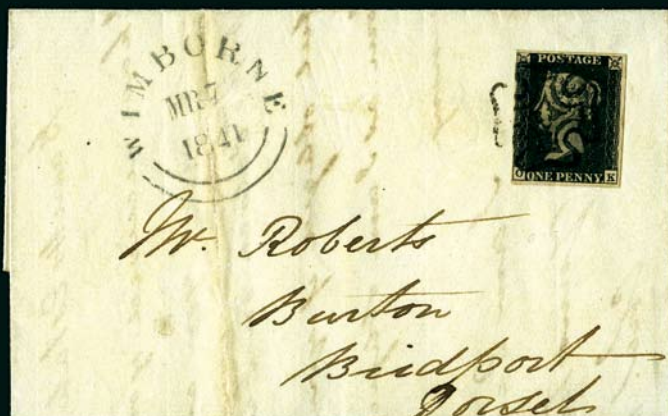 WIMBORNE
MR 7
1841
POSTAGE
O ONE PENNY K
Mr. Roberts
Burton
Bridport
Dorset